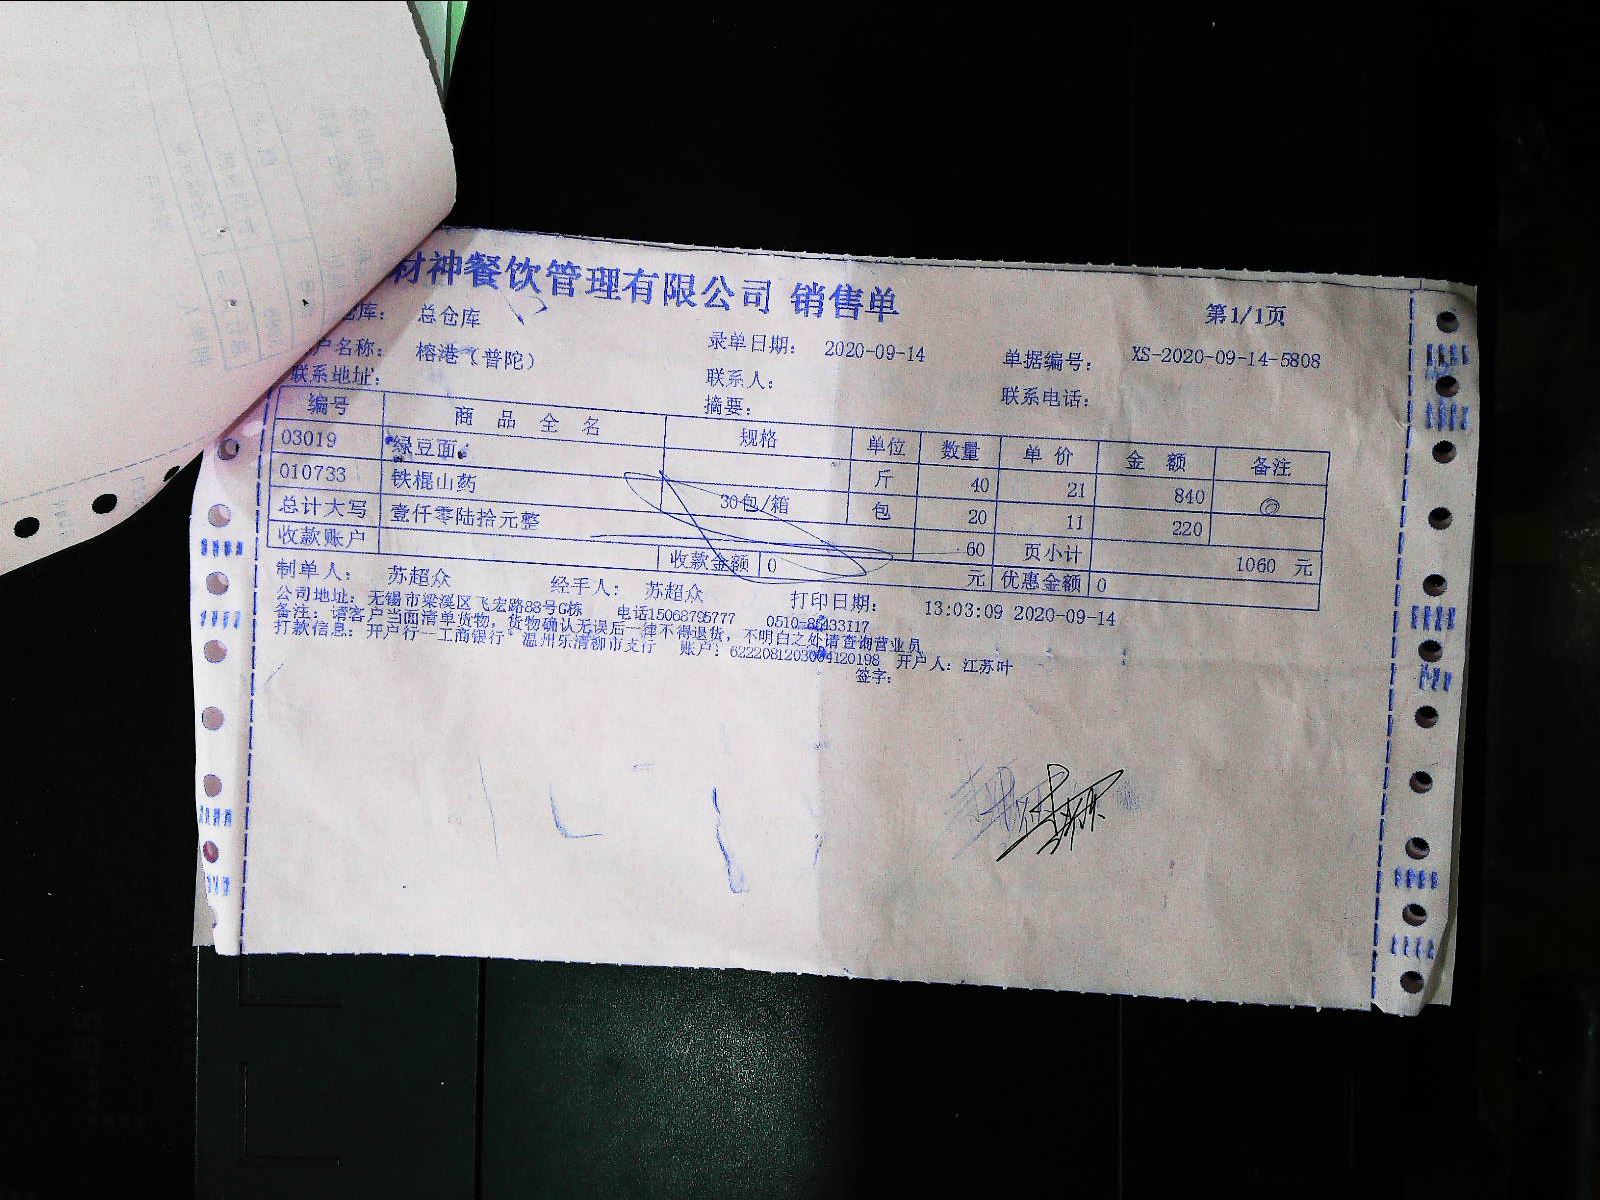 材神餐饮管理有限公司 销售单
第1/1页
仓库： 总仓库
户名称： 榕港（普陀） 录单日期： 2020-09-14 单据编号： XS-2020-09-14-5808
联系地址： 联系人： 联系电话：
摘要：
编号 商 品 全 名 规格 单位 数量 单 价 金 额 备注
03019 绿豆面 斤 40 21 840
010733 铁棍山药 30包/箱 包 20 11 220
总计大写 壹仟零陆拾元整 60 页小计 1060 元
收款账户 收款金额 0 元 优惠金额 0
制单人： 苏超众 经手人： 苏超众 打印日期： 13:03:09 2020-09-14
公司地址：无锡市梁溪区飞宏路88号G栋 电话15068795777 0510-85433117
备注：请客户当面清单货物，货物确认无误后一律不得退货，不明白之处请查询营业员
打款信息：开户行--工商银行 温州乐清柳市支行 账户：6222081203004120198 开户人：江苏叶
签字：